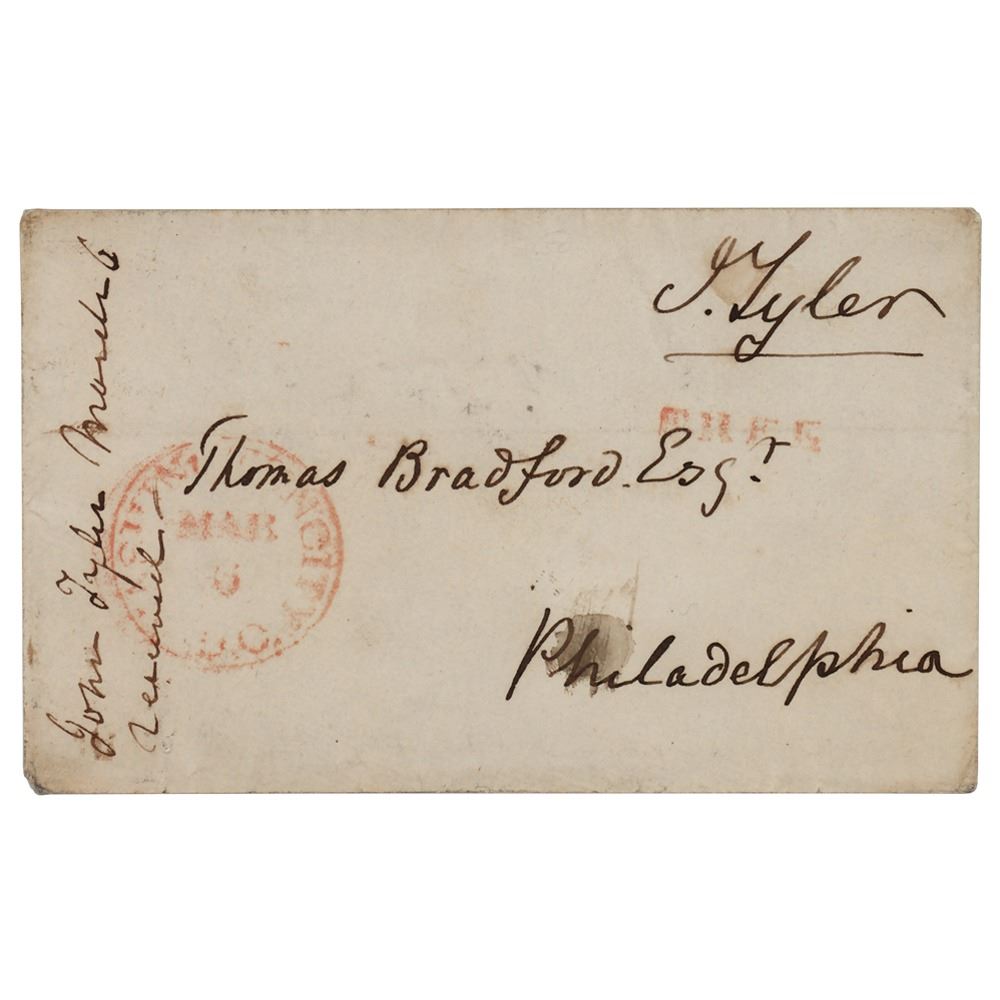 J. Tyler
FREE
Thomas Bradford. Esqr
WASHINGTON CITY D.C.
MAR
6
Philadelphia
John Tyler March 6
received